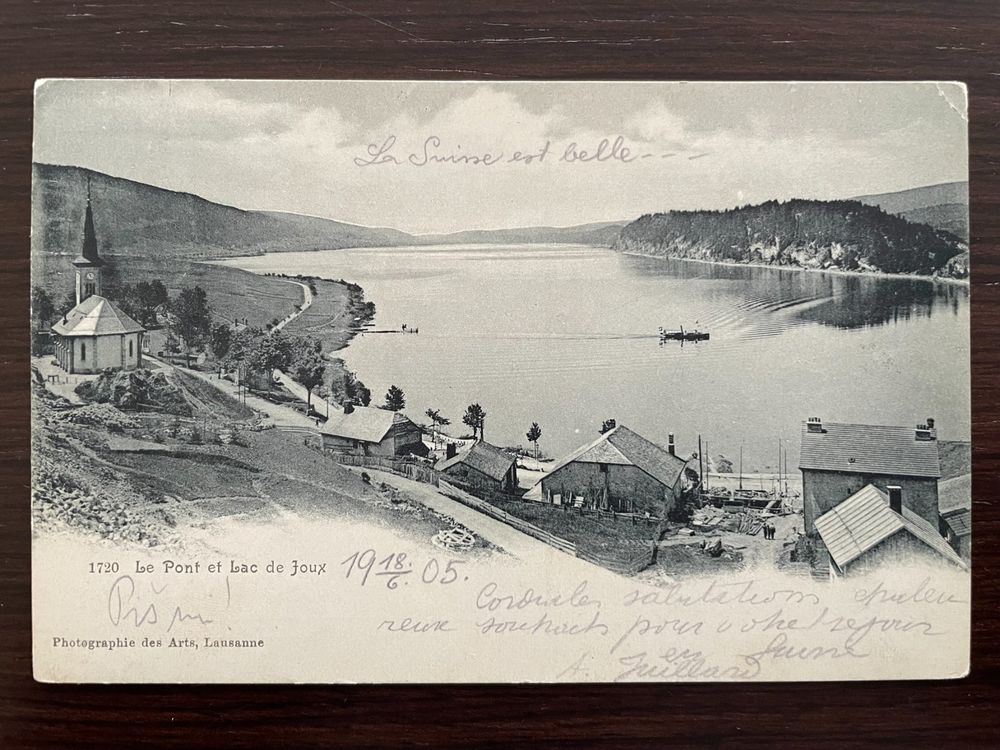 La Suisse est belle ---
1720 Le Pont et Lac de Joux
19 18/6 05.
Piš mi!
Photographie des Arts, Lausanne
Cordiales salutations et
reux souhaits pour votre séjour
en Suisse
A. Juillard